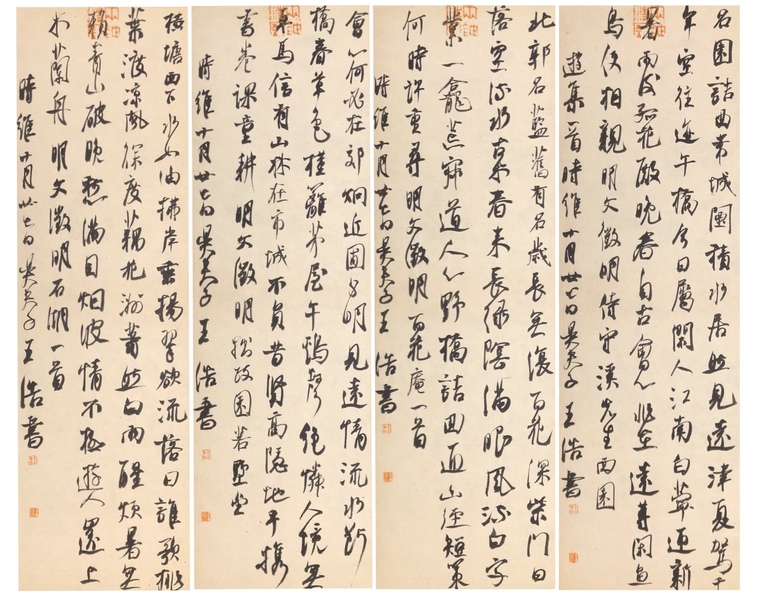 名園詰曲帶城闉積水居然見遠津夏駕千
年空往迹午橋今日屬閒人江南白苧迎新
暑雨後孤花殿晚春自古會心非在遠等閒魚
鳥便相親明文徵明侍守溪先生西園
遊集一首時維十月廿七日吳夫子王浩書
北郭名藍舊有名歲長無復百花深柴門日
落空流水春來長綠陰滿眼風流白字
業一龕道人心野橋詰曲通山徑短策
何時許重尋明文徵明百花庵一首
時維十月廿七日吳夫子王浩書
會心何必在郊坰近圃分明見遠情流水斷
橋春草色槿籬茅屋午鷄聲絕憐人境無
車馬信有山林在市城不負昔賢高隱地手攜
書卷課童耕明文徵明拙政園若墅堂
時維十月廿七日吳夫子王浩書
橫塘西下水如油拂岸垂楊翠欲流落日誰歌桃
葉渡涼風徐度藕花洲蕭然白雨醒煩暑無
賴青山破晚愁滿目烟波情不極遊人還上
木蘭舟明文徵明石湖一首
時維十月廿七日吳夫子王浩書